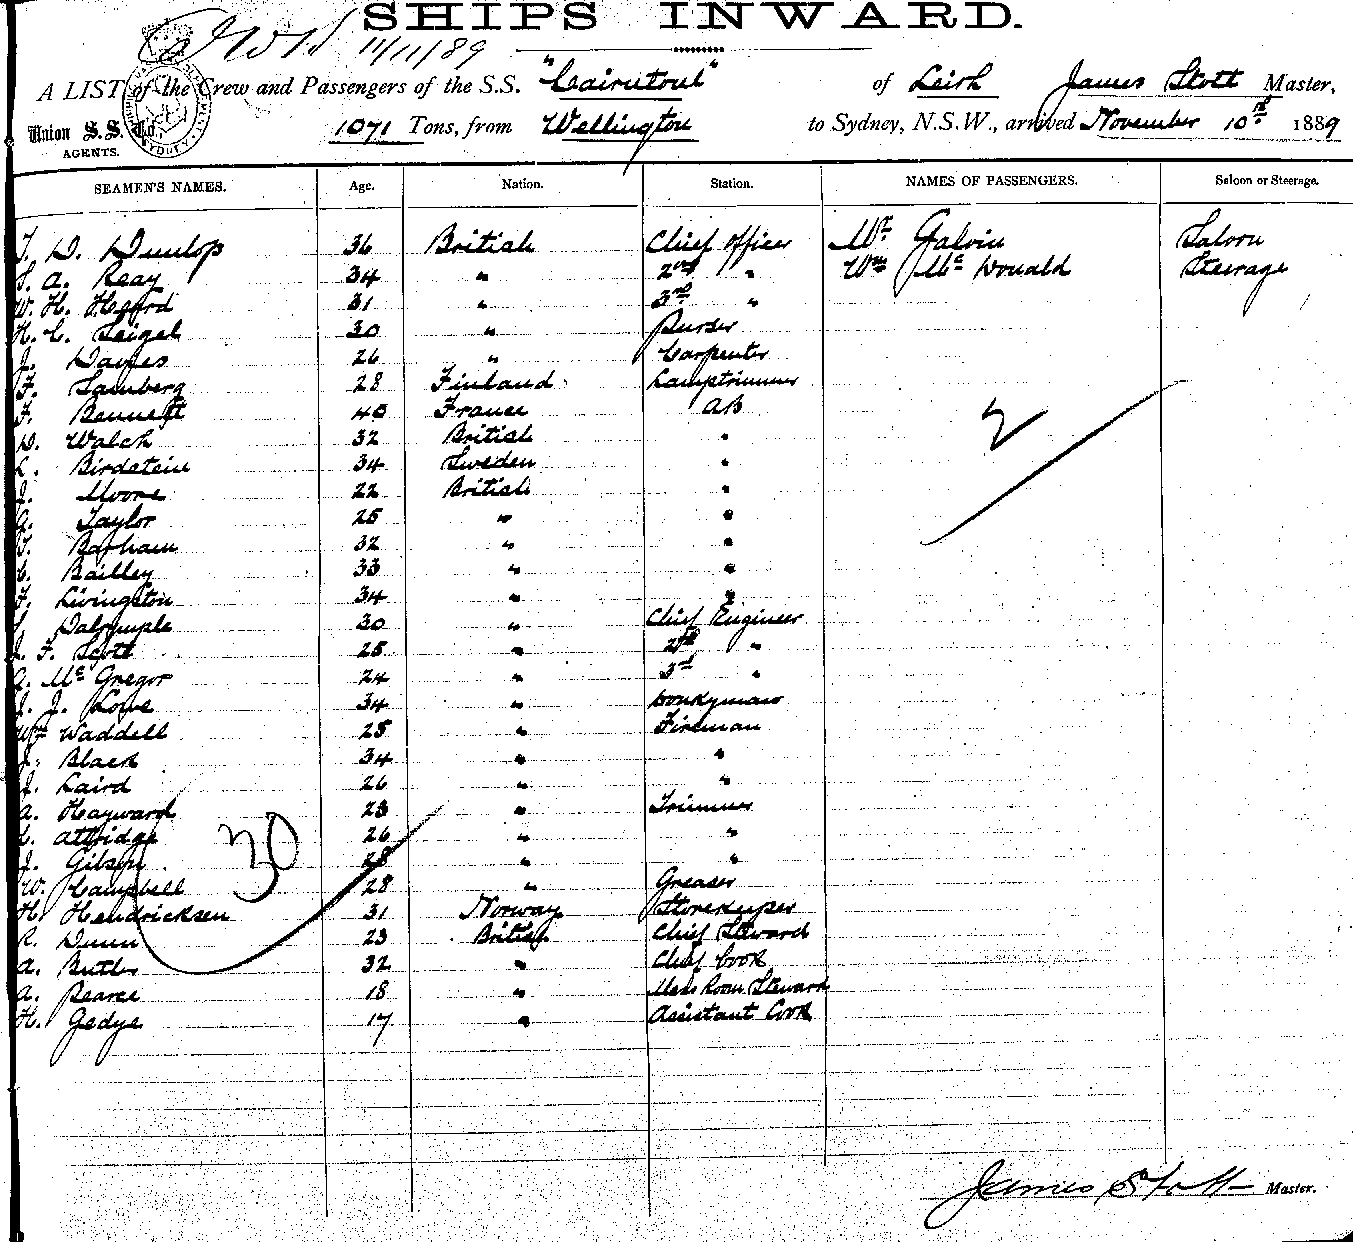 SHIPS INWARD.
11/11/89
A LIST of the Crew and Passengers of the S.S. "Cairntoul" of Leith James Stott Master,
Union S.S. Co. AGENTS. 1071 Tons, from Wellington to Sydney, N.S.W., arrived November 10th 1889
SEAMEN'S NAMES. Age. Nation. Station. NAMES OF PASSENGERS. Saloon or Steerage.
D. Dunlop 36 British Chief Officer Mr. Galvin Saloon
A. Reay 34 " 2nd " Wm McDonald Steerage
W. H. 31 " 3rd "
H. C. Seigel 30 " Purser
J. Davies 26 " Carpenter
F. Lamberg 28 Finland Lamptrimmer
F. Bennett 40 France AB
D. Walch 32 British "
Birdstein 34 Sweden "
J. Moore 22 British "
Taylor 25 " "
Barham 32 " "
Bailley 33 " "
Livingston 34 " "
Dalrymple 30 " Chief Engineer
J. F. Scott 25 " 2nd "
A. McGregor 24 " 3rd "
J. J. Lowe 34 " Donkyman
Wm Waddell 25 " Fireman
J. Black 34 " "
J. Laird 26 " "
A. Hayward 23 " Trimmer
Attridge 26 " "
J. Gibson 28 " "
W. Campbell 28 " Greaser
H. Hendricksen 31 Norway Storekeeper
R. Dunn 23 British Chief Steward
A. Butler 32 " Chief Cook
A. Pearce 18 " Mess Room Steward
H. Gedye 17 " Assistant Cook
2
30
James Stott Master.